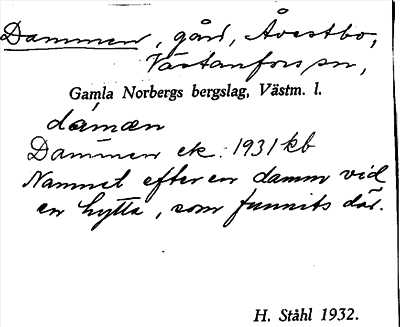 Dammen, gård, Åvestbo,
Västanfors sn,
Gamla Norbergs bergslag, Västm. l.
dámæn
Dammen ek. 1931 kb
Namnet efter en damm vid
en hytta, som funnits där.
H. Ståhl 1932.